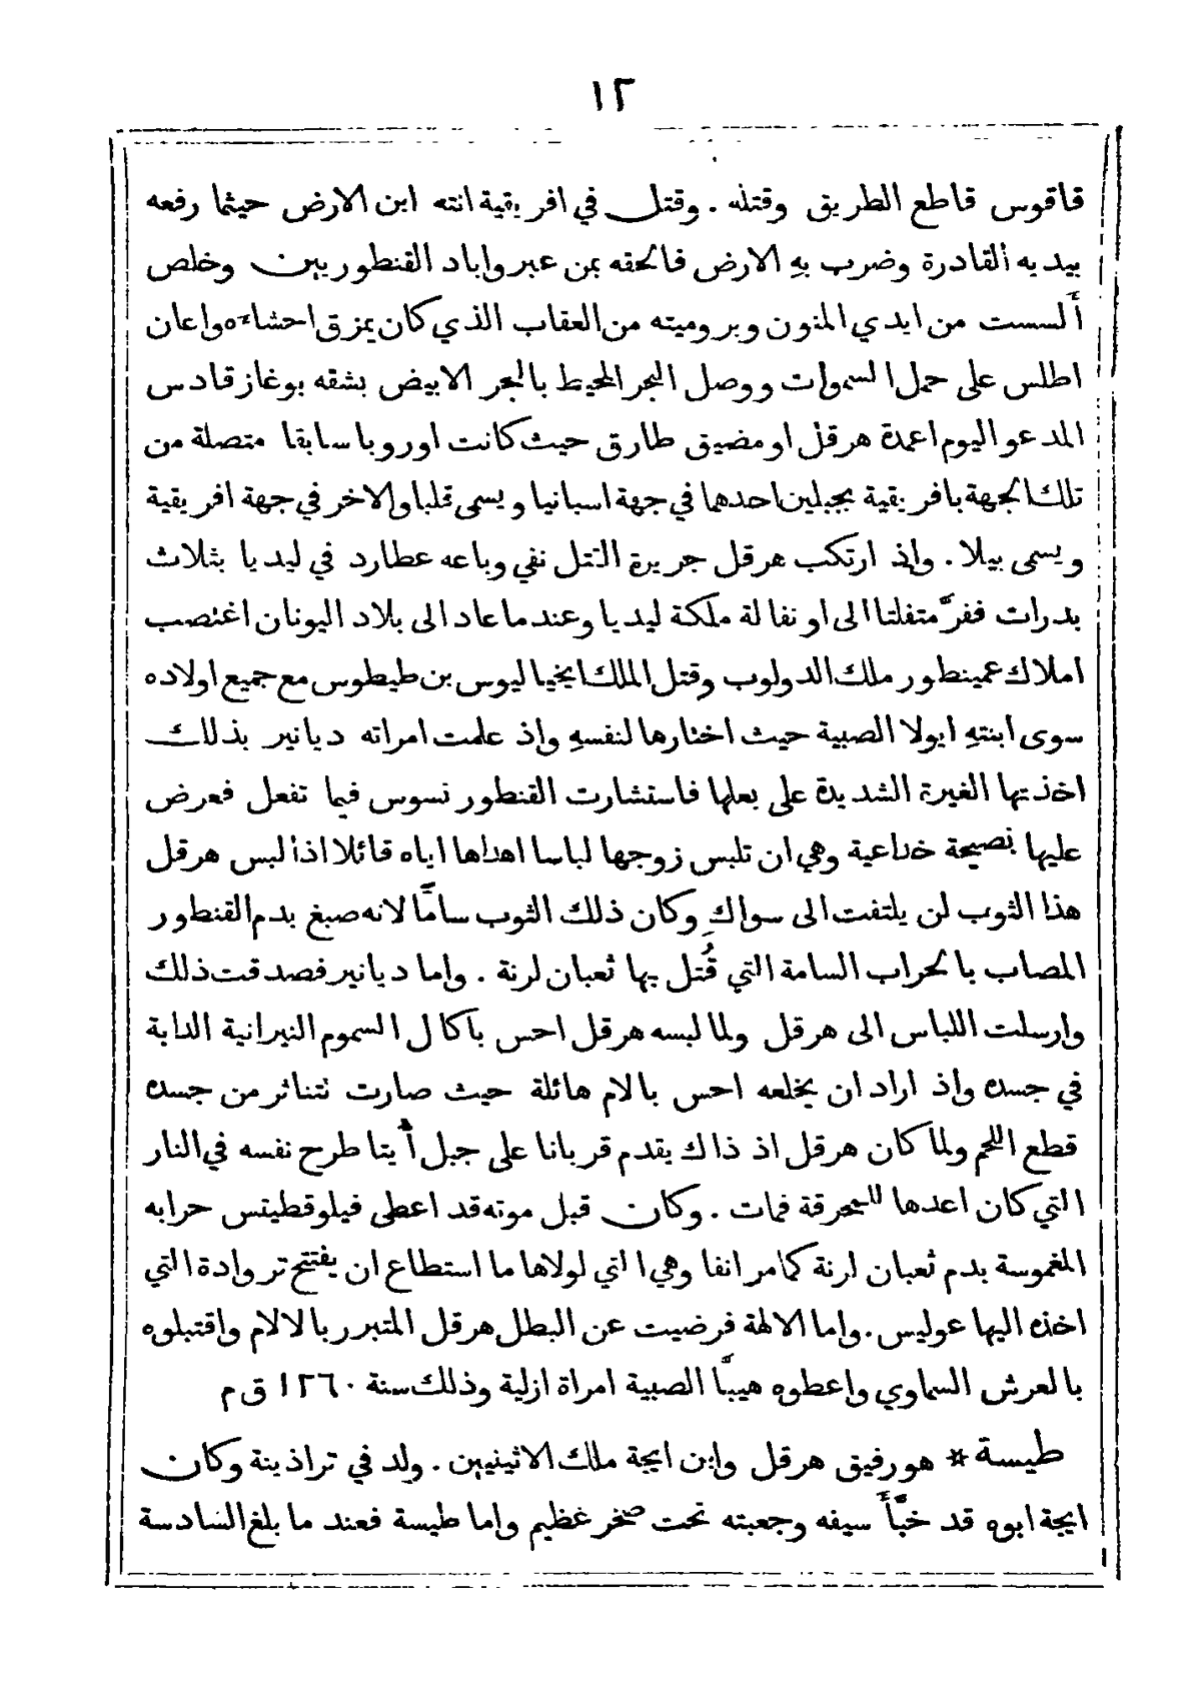 ١٢
قاقوس قاطع الطريق وقتله . وقتل في افريقية انته ابن الارض حيثما رفعه
بيديه القادرة وضرب بهِ الارض فالحقه بمن عبر واباد القنطوريين وخلص
ألسست من ايدي المنون وبروميته من العقاب الذي كان يمزق احشاءَه واعان
اطلس على حمل السموات ووصل البحر المحيط بالبحر الابيض بشقه بوغاز قادس
المدعو اليوم اعمدة هرقل او مضيق طارق حيث كانت اوروبا سابقا متصلة من
تلك الجهة بافريقية بجبلين احدهما في جهة اسبانيا ويسمى قلبا والاخر في جهة افريقية
ويسمى بيلا . واذ ارتكب هرقل جريرة القتل نفي وباعه عطارد في ليديا بثلاث
بدرات ففرَّ متفلتا الى اونفالة ملكة ليديا وعند ما عاد الى بلاد اليونان اغتصب
املاك عمينطور ملك الدولوب وقتل الملك ايخياليوس بن طيطوس مع جميع اولاده
سوى ابنتهِ ايولا الصبية حيث اختارها لنفسهِ واذ علمت امراته ديانير بذلك
اخذتها الغيرة الشديدة على بعلها فاستشارت القنطور نسوس فيما تفعل فعرض
عليها نصيحة خداعية وهي ان تلبس زوجها لباسا اهداها اياه قائلا اذا لبس هرقل
هذا الثوب لن يلتفت الى سواكِ وكان ذلك الثوب سامًّا لانه صبغ بدم القنطور
المصاب بالحراب السامة التي قُتل بها ثعبان لرنة . واما ديانير فصدقت ذلك
وارسلت اللباس الى هرقل ولما لبسه هرقل احس بآكال السموم النيرانية الدابة
في جسده واذ اراد ان يخلعه احس بالام هائلة حيث صارت تتناثر من جسده
قطع اللحم ولما كان هرقل اذ ذاك يقدم قربانا على جبل أيتا طرح نفسه في النار
التي كان اعدها للمحرقة فمات . وكان قبل موته قد اعطى فيلوقطيتس حرابه
المغموسة بدم ثعبان لرنة كما مر انفا وهي التي لولاها ما استطاع ان يفتتح تروادة التي
اخذه اليها عوليس . واما الالهة فرضيت عن البطل هرقل المتبرر بالالام واقتبلوه
بالعرش السماوي واعطوه هيبَّا الصبية امراة ازلية وذلك سنة ١٢٦٠ ق م
طيسة * هو رفيق هرقل وابن ايجة ملك الاثينيين . ولد في تراذينة وكان
ايجة ابوه قد خبَّأَ سيفه وجعبته تحت صخر عظيم واما طيسة فعند ما بلغ السادسة